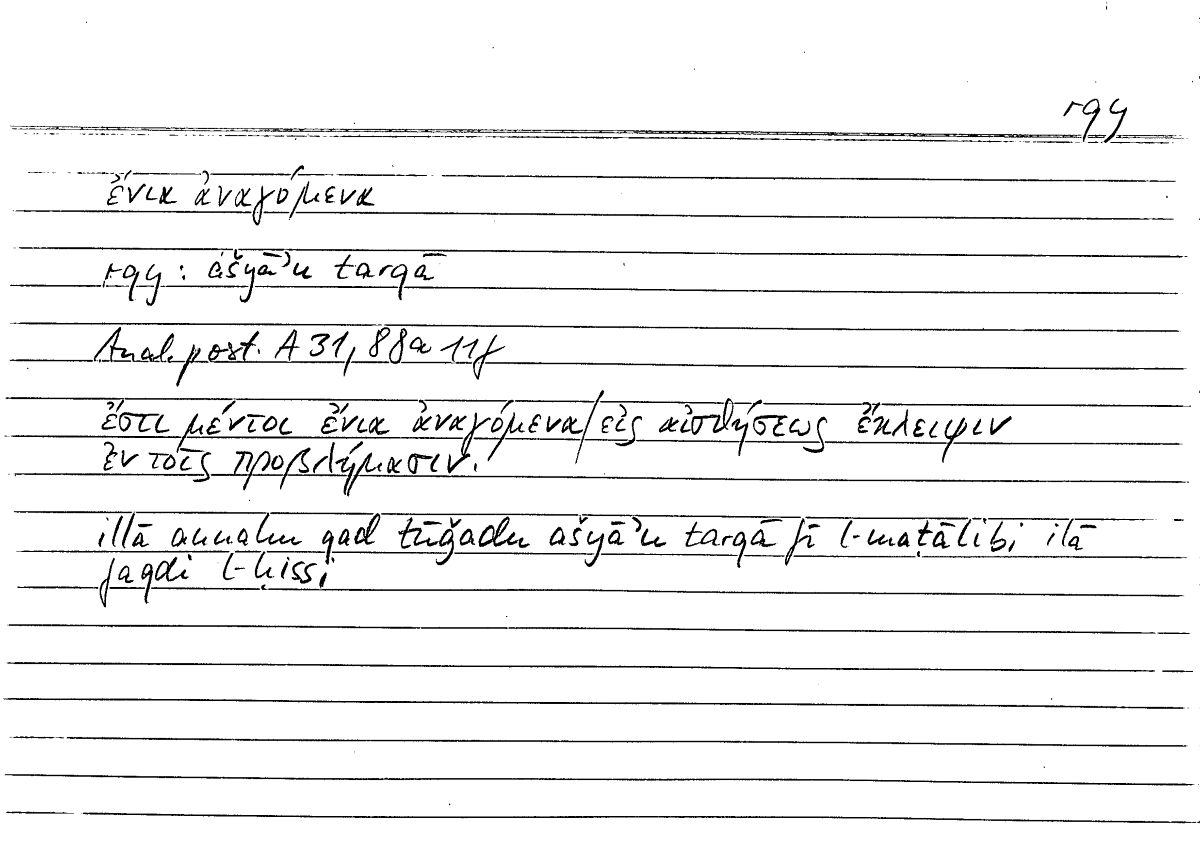 rqy
ἔνια ἀναγόμενα
rqy : ašyāʾu tarqā
Anal. post. A 31, 88a 11f
ἔστι μέντοι ἔνια ἀναγόμενα/εἰς αἰσθήσεως ἔκλειψιν
ἐν τοῖς προβλήμασιν.
illā annahu qad tūǧadu ašyāʾu tarqā fī l-maṭālibi ilā
faqdi l-ḥissi